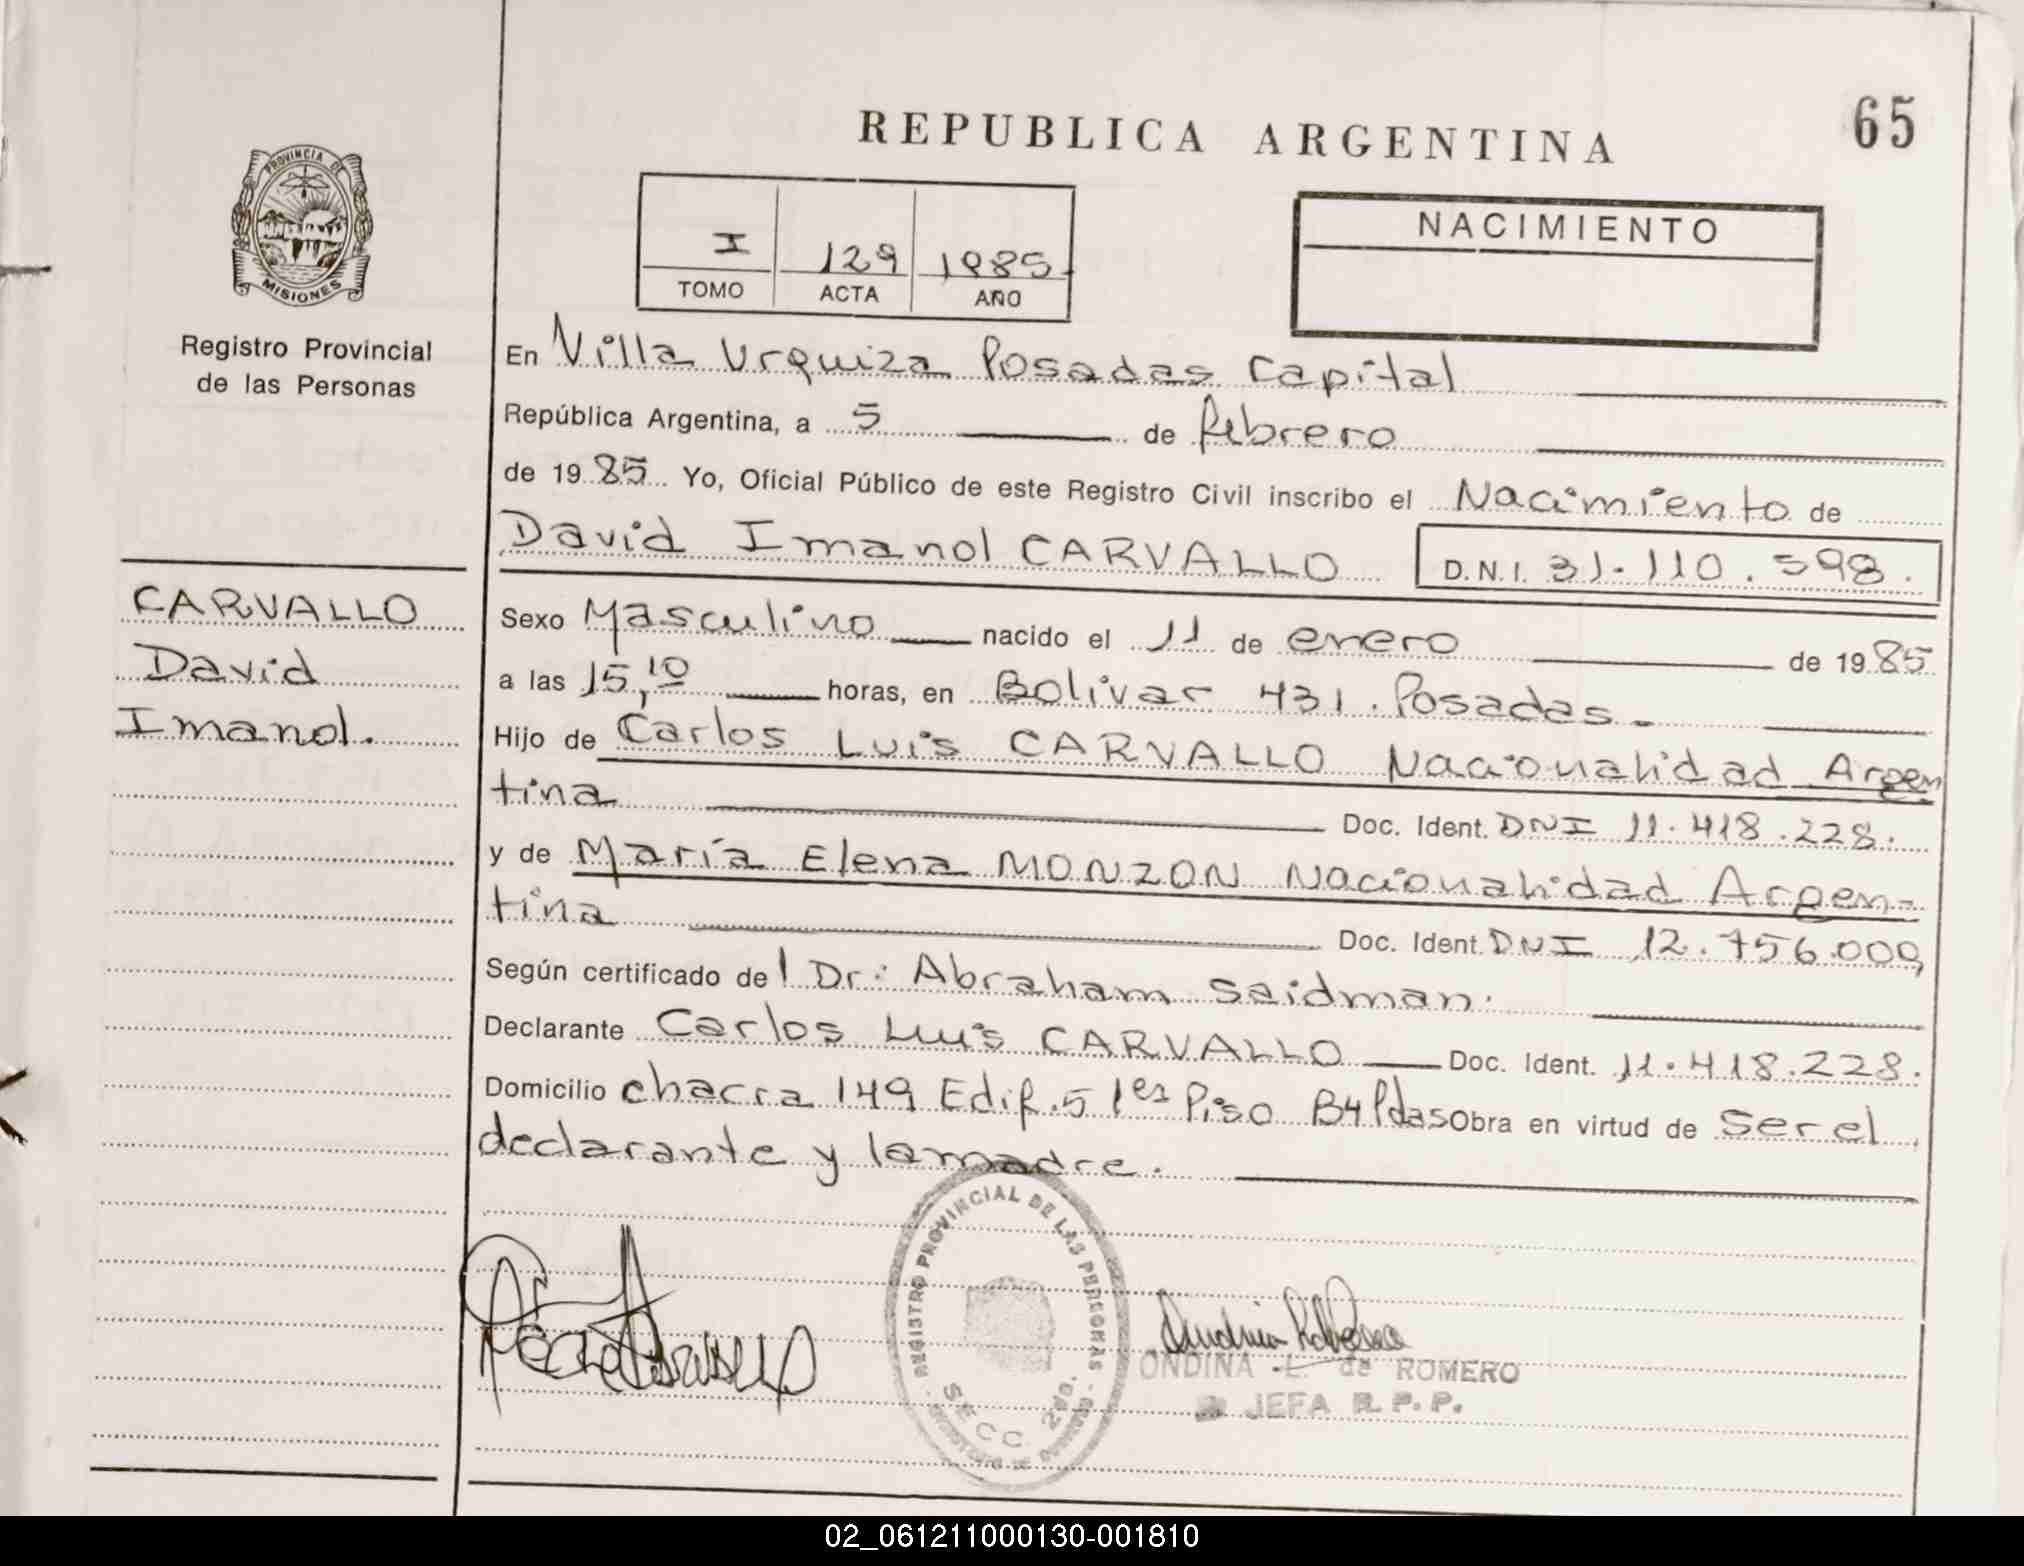 65
REPUBLICA ARGENTINA
PROVINCIA DE
MISIONES
Registro Provincial
de las Personas
I 129 1985
TOMO ACTA AÑO
NACIMIENTO
En Villa Urquiza Posadas Capital
República Argentina, a 5 de febrero
de 1985 Yo, Oficial Público de este Registro Civil inscribo el Nacimiento de
David Imanol CARVALLO D.N.I. 31.110.598.
CARVALLO
David
Imanol.
Sexo Masculino nacido el 11 de enero de 1985
a las 15,10 horas, en Bolivar 431. Posadas.
Hijo de Carlos Luis CARVALLO Nacionalidad Argen
tina Doc. Ident. DNI 11.418.228.
y de María Elena MONZON Nacionalidad Argen-
tina Doc. Ident. DNI 12.756.000,
Según certificado de l Dr: Abraham Saidman.
Declarante Carlos Luis CARVALLO Doc. Ident. 11.418.228.
Domicilio chacra 149 Edif. 5 1er Piso B4 Pdas Obra en virtud de Ser el
declarante y la madre.
REGISTRO PROVINCIAL DE LAS PERSONAS
SECC. 2da.
ONDINA L. de ROMERO
JEFA R.P.P.
02_061211000130-001810